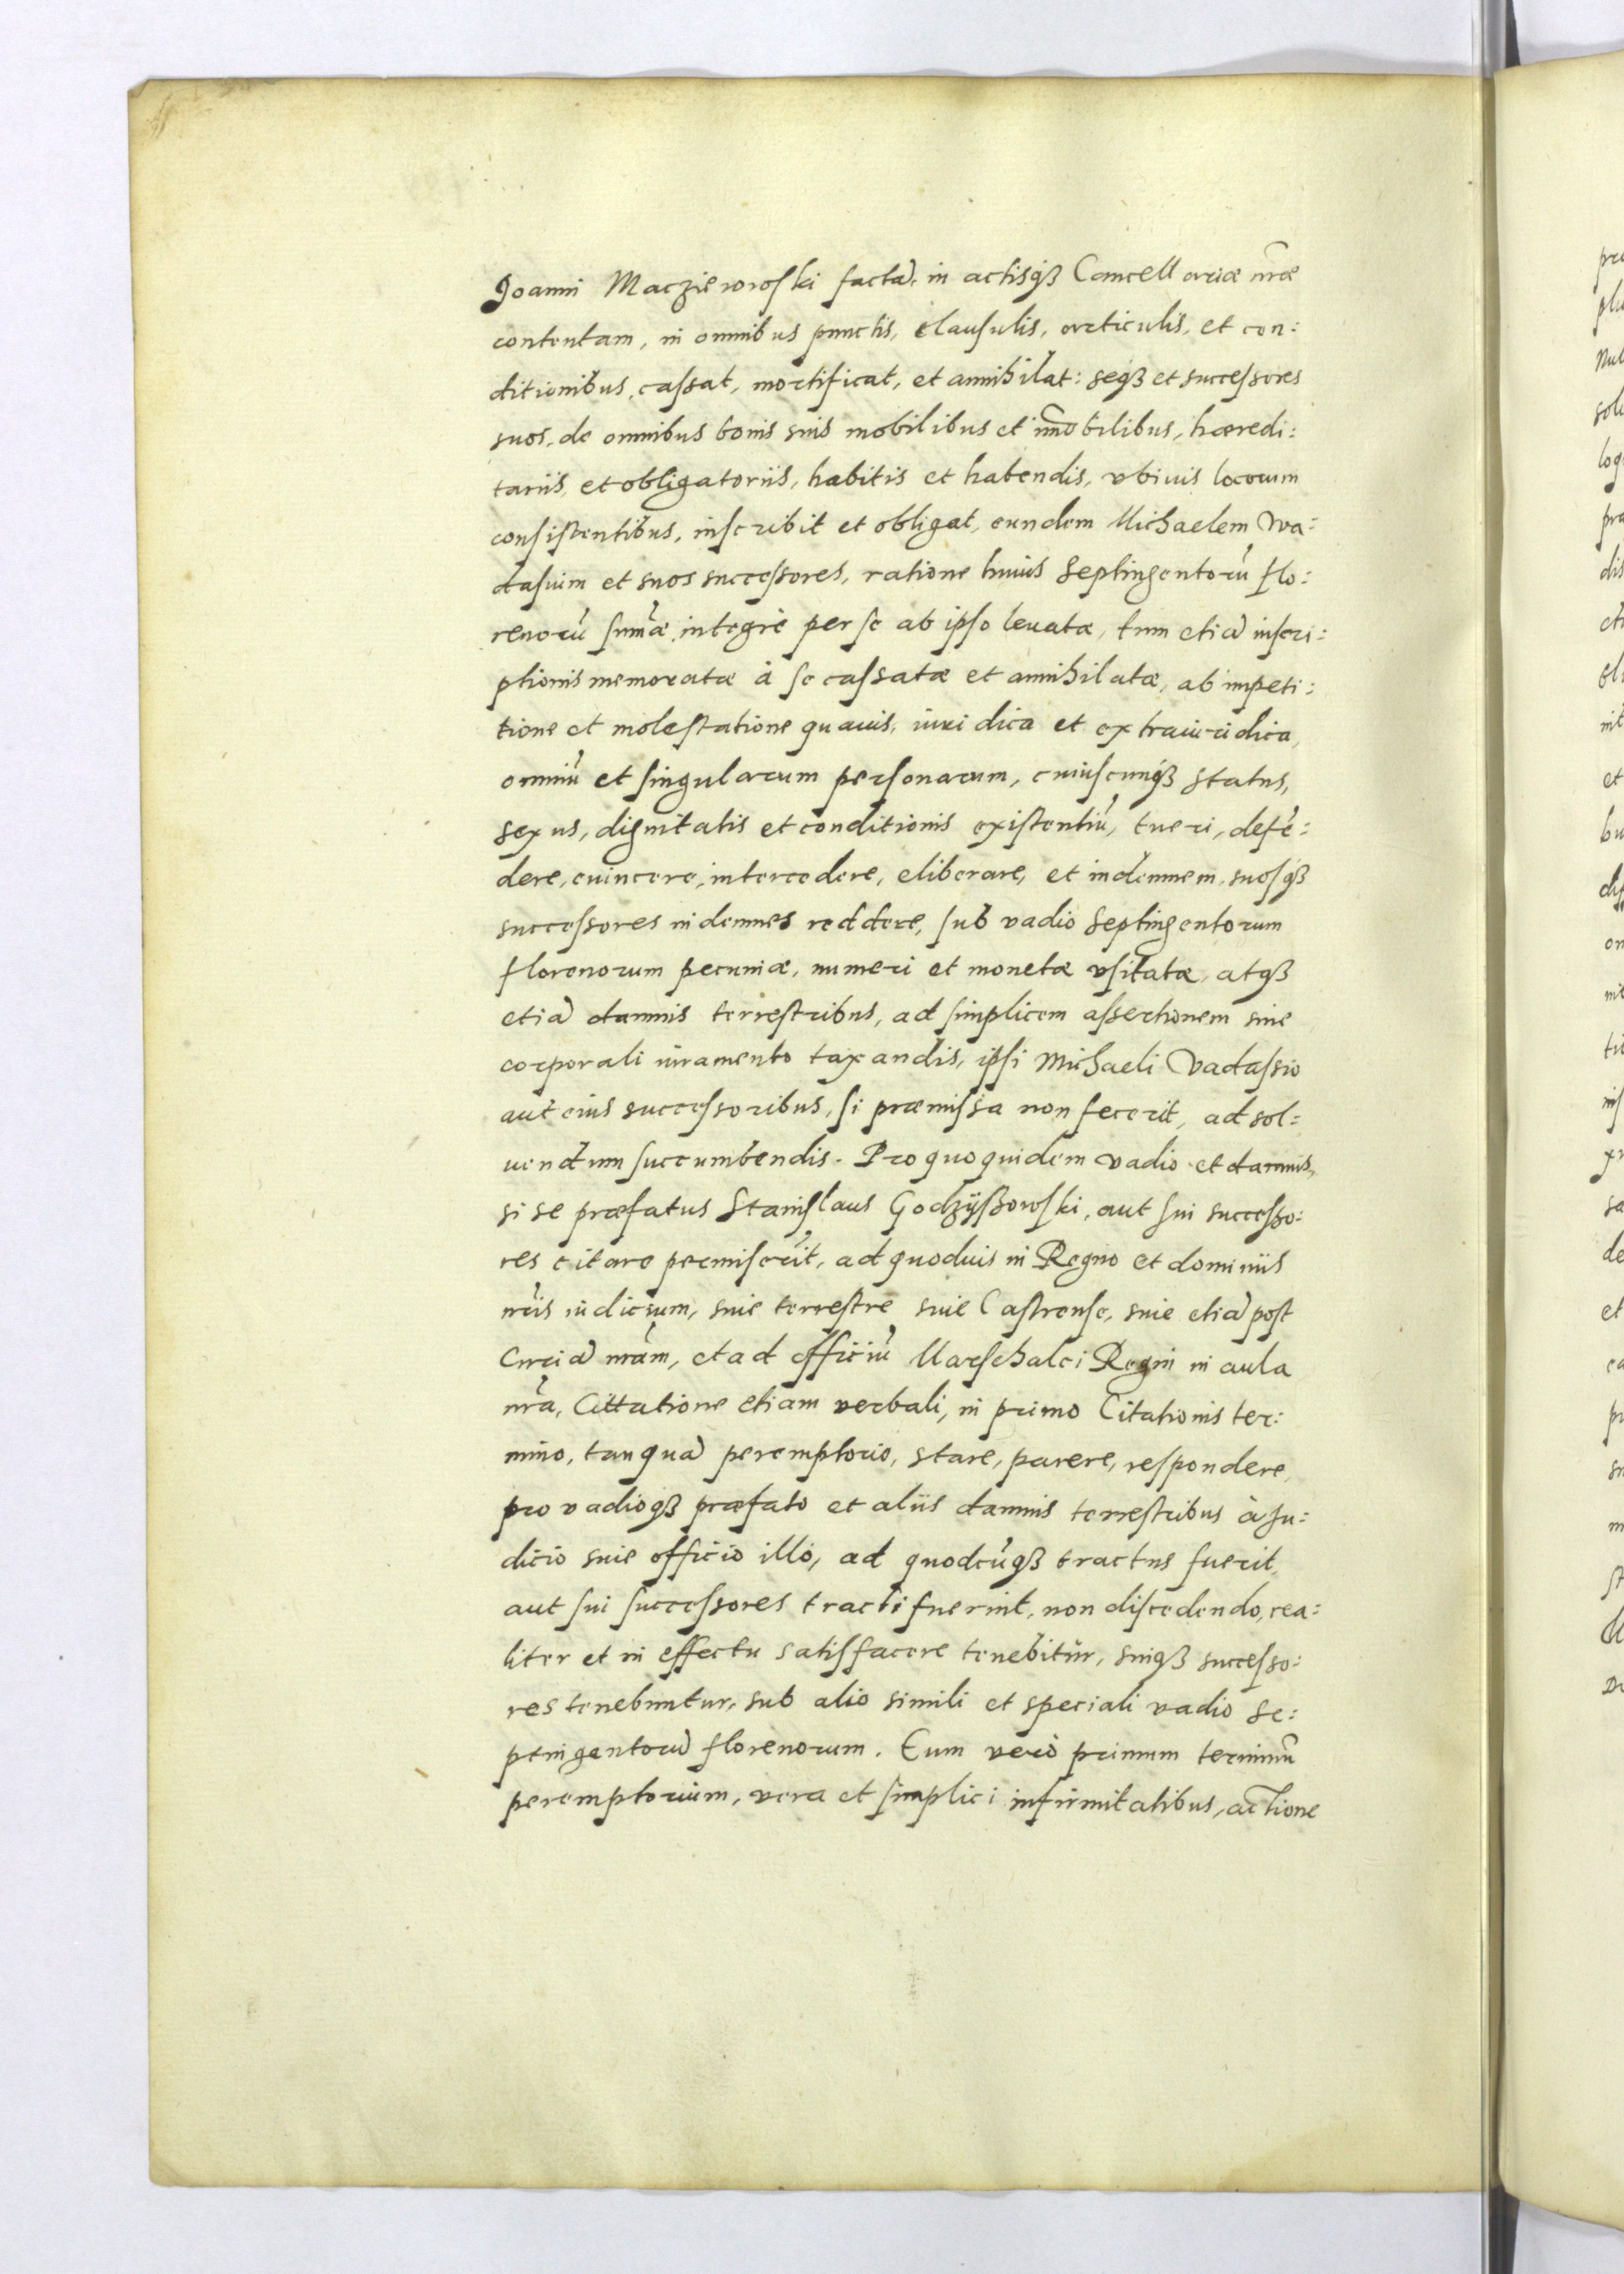 Joanni Maczieiowski factã, in actisqȝ Cancellariæ nr̃æ
contentam, in omnibus punctis, clausulis, articulis, et con:
ditionibus, cassat, mortificat, et annihilat: seqȝ et successores
suos, de omnibus bonis suis mobilibus et im̃obilibus, hæredi:
tariis et obligatoriis, habitis et habendis, vbiuis locorum
consistentibus, inscribit et obligat, eundem Michaelem Wa:
dasium et suos successores, ratione huius septingentorũ flo:
renorũ sum̃æ, integrè per se ab ipso leuatæ, tum etiã inscri:
ptionis memoratæ à se cassatæ et annihilatæ, ab impeti:
tione et molestatione quauis, iuridica et extraiuridica,
omniũ et singularum personarum, cuiuscunqȝ status,
sexus, dignitatis et conditionis existentiũ, tueri, defẽ:
dere, euincere, intercedere, eliberare, et indemnem, suosqȝ
successores indemnes reddere, sub vadio septingentorum
florenorum pecuniæ, numeri et monetæ vsitatæ, atqȝ
etiã damnis terrestribus, ad simplicem assertionem sine
corporali iuramento taxandis, ipsi Michaeli Vadassio
aut eius successoribus, si præmissa non fecerit, ad sol:
uendum succumbendis. Pro quo quidem vadio et damnis,
si se præfatus Stanislaus Godzÿßowski, aut sui successo:
res citare permiserĩt, ad quoduis in Regno et dominiis
nr̃is iudicium, siue terrestre siue Castrense, siue etiã post
Curiã nr̃am, et ad officiũ Marschalci Regni in aula
nr̃a, Cittatione etiam verbali, in primo Citationis ter:
mino, tanquã peremptorio, stare, parere, respondere,
pro vadioqȝ præfato et aliis damnis terrestribus à Ju:
dicio siue officio illo, ad quodcũqȝ tractus fuerit,
aut sui successores tracti fuerint, non discedendo, rea:
liter et in effectu satisfacere tenebitur, suiqȝ successo:
res tenebuntur, sub alio simili et speciali vadio se:
ptingentorũ florenorum. Eum verò primum terminũ
peremptorium, vera et simplici infirmitatibus, actione